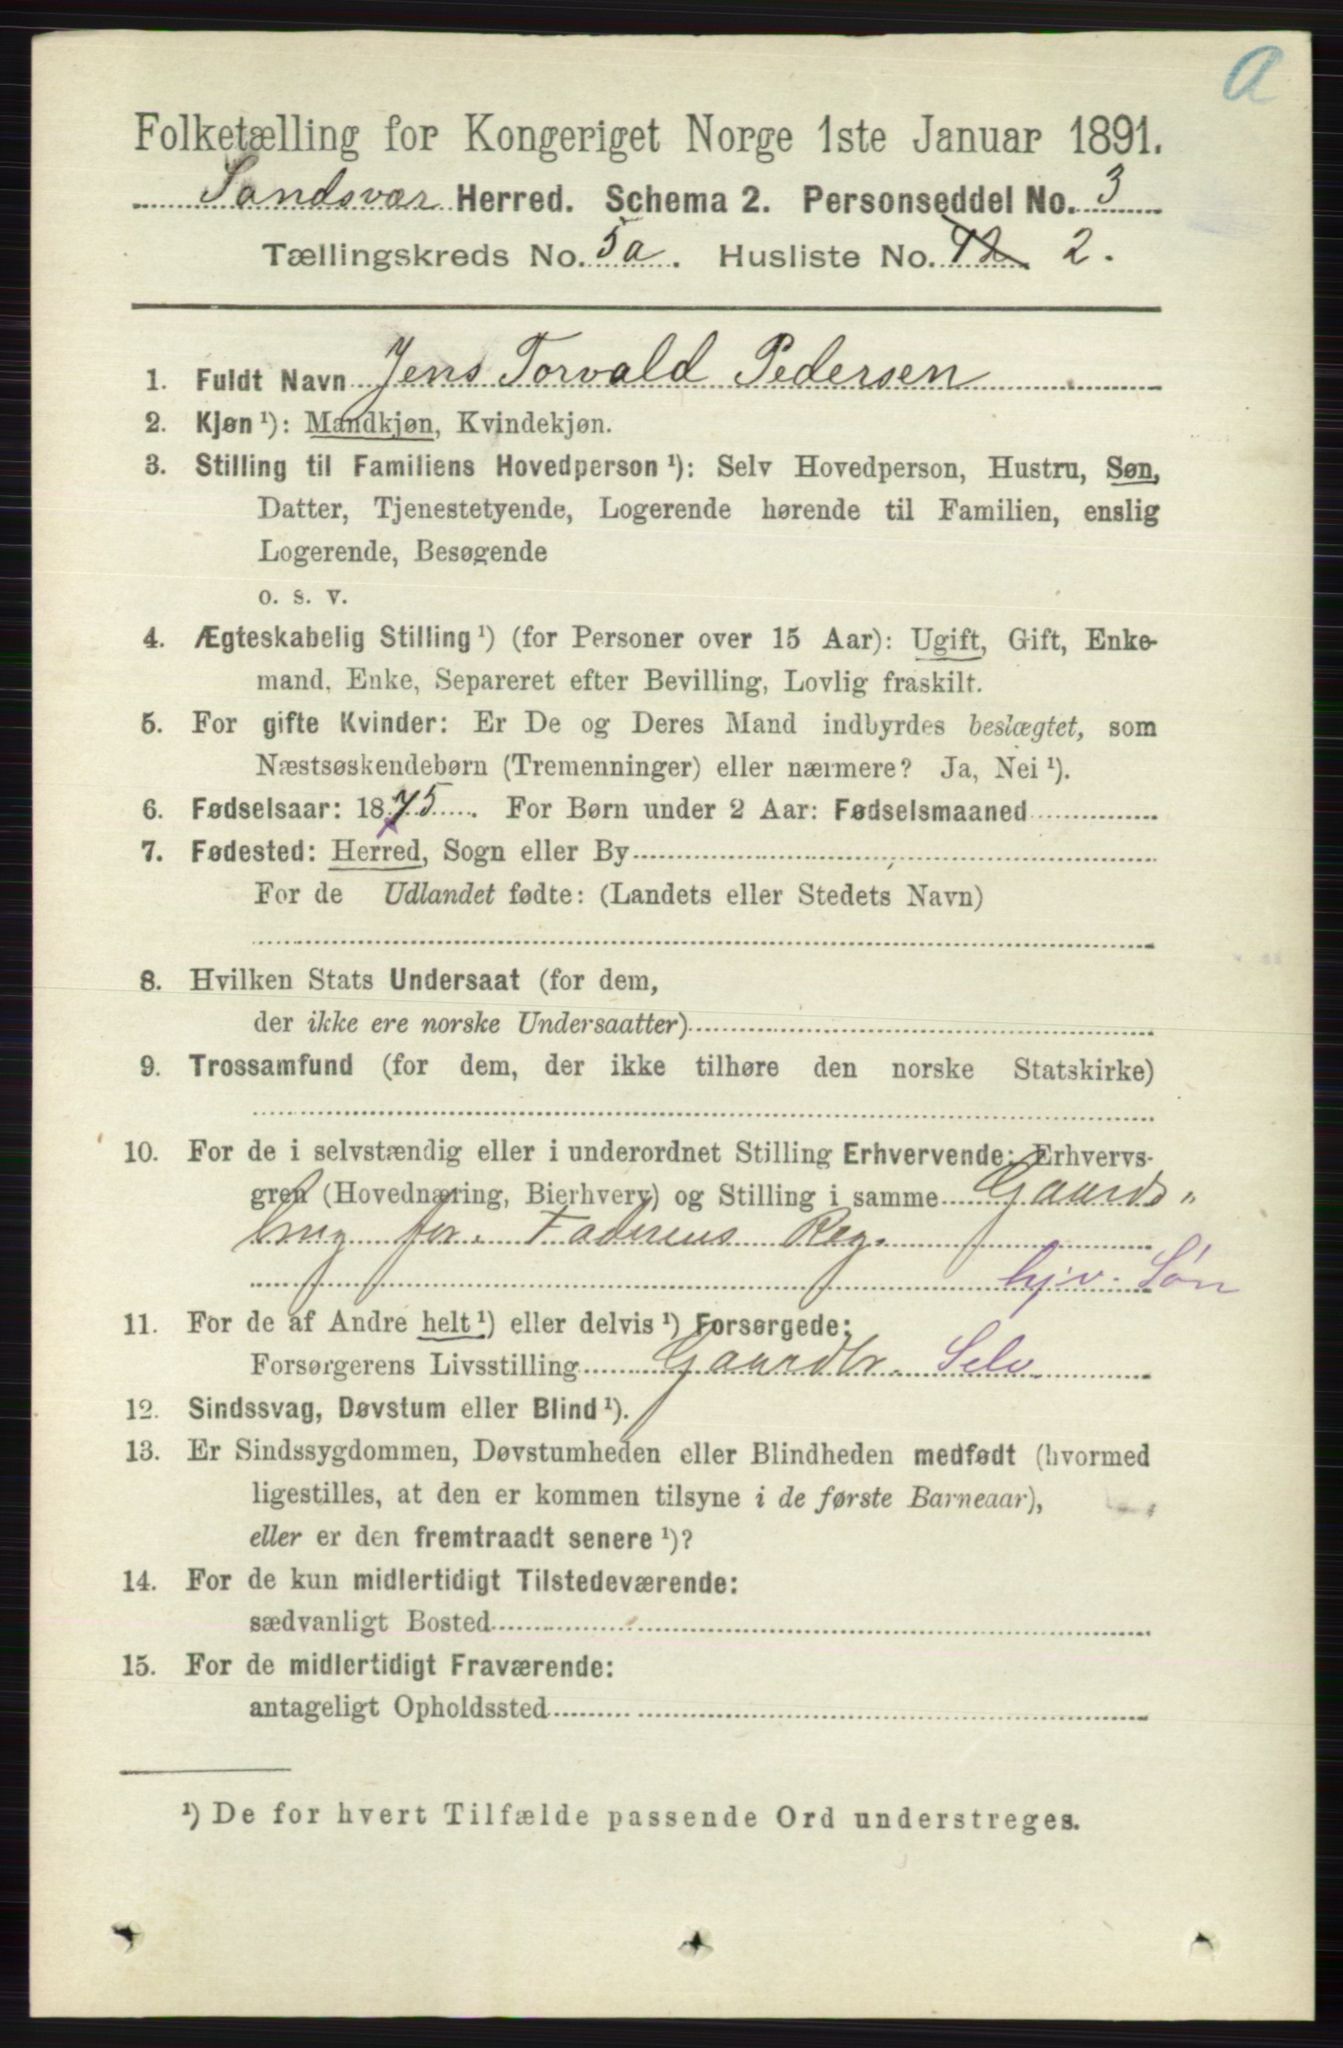 a
Folketælling for Kongeriget Norge 1ste Januar 1891.
Sandsvær Herred. Schema 2. Personseddel No. 3
Tællingskreds No. 5a. Husliste No. 12 2.
1. Fuldt Navn Jens Torvald Pedersen
2. Kjøn ¹): Mandkjøn, Kvindekjøn.
3. Stilling til Familiens Hovedperson ¹): Selv Hovedperson, Hustru, Søn,
Datter, Tjenestetyende, Logerende hørende til Familien, enslig
Logerende, Besøgende
o. s. v.
4. Ægteskabelig Stilling ¹) (for Personer over 15 Aar): Ugift, Gift, Enke-
mand, Enke, Separeret efter Bevilling, Lovlig fraskilt.
5. For gifte Kvinder: Er De og Deres Mand indbyrdes beslægtet, som
Næstsøskendebørn (Tremenninger) eller nærmere? Ja, Nei ¹).
6. Fødselsaar: 1875. For Børn under 2 Aar: Fødselsmaaned
7. Fødested: Herred, Sogn eller By
For de Udlandet fødte: (Landets eller Stedets Navn)
8. Hvilken Stats Undersaat (for dem,
der ikke ere norske Undersaatter)
9. Trossamfund (for dem, der ikke tilhøre den norske Statskirke)
10. For de i selvstændig eller i underordnet Stilling Erhvervende: Erhvervs-
gren (Hovednæring, Bierhverv) og Stilling i samme Gaards„
brug for Faderens Reg.
hjv. Søn
11. For de af Andre helt ¹) eller delvis ¹) Forsørgede:
Forsørgerens Livsstilling Gaardbr. Selv.
12. Sindssvag, Døvstum eller Blind ¹).
13. Er Sindssygdommen, Døvstumheden eller Blindheden medfødt (hvormed
ligestilles, at den er kommen tilsyne i de første Barneaar),
eller er den fremtraadt senere ¹)?
14. For de kun midlertidigt Tilstedeværende:
sædvanligt Bosted
15. For de midlertidigt Fraværende:
antageligt Opholdssted
¹) De for hvert Tilfælde passende Ord understreges.